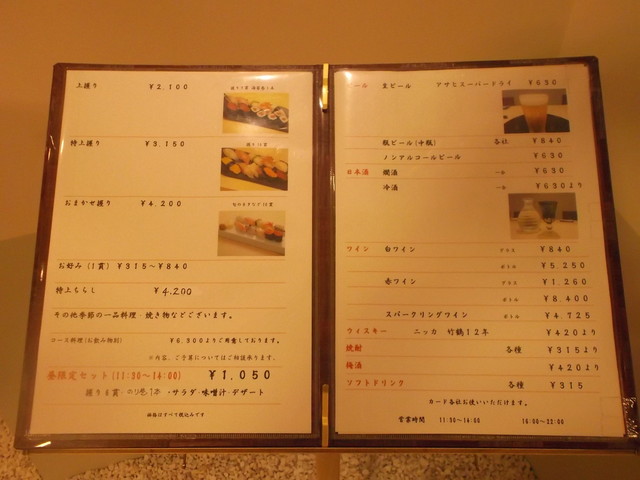 上握り ¥2,100
特上握り ¥3,150
おまかせ握り ¥4,200
お好み(1貫) ¥315〜¥840
特上ちらし ¥4,200
その他季節の一品料理・焼き物などございます。
コース料理(お飲み物別) ¥6,300よりご用意しております。
※内容、ご予算についてはご相談承ります。
昼限定セット(11:30〜14:00) ¥1,050
握り8貫・のり巻1本・サラダ・味噌汁・デザート
価格はすべて税込みです
ビール 生ビール アサヒスーパードライ ¥630
瓶ビール(中瓶) 各社 ¥840
ノンアルコールビール ¥630
日本酒 燗酒 一合 ¥630
冷酒 一合 ¥630より
ワイン 白ワイン グラス ¥840
ボトル ¥5,250
赤ワイン グラス ¥1,260
ボトル ¥8,400
スパークリングワイン ボトル ¥4,725
ウィスキー ニッカ 竹鶴12年 ¥420より
焼酎 各種 ¥315より
梅酒 ¥420より
ソフトドリンク 各種 ¥315
カード各社お使いいただけます。
営業時間 11:30〜14:00 16:00〜22:00